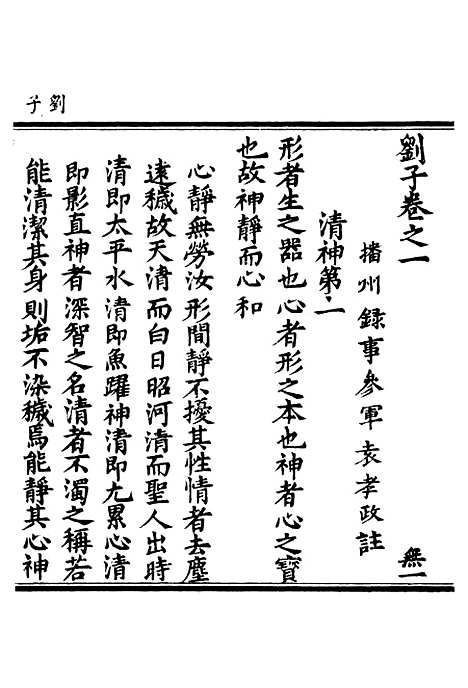 劉子
劉子卷之一
無一
播州録事參軍袁孝政註
清神第一
形者生之器也心者形之本也神者心之寶
也故神静而心和
心静無勞汝形間静不擾其性情者去塵
遠穢故天清而白日昭河清而聖人出時
清即太平水清即魚躍神清即尢累心清
即影直神者深智之名清者不濁之稱若
能清潔其身則垢不染穢焉能静其心神